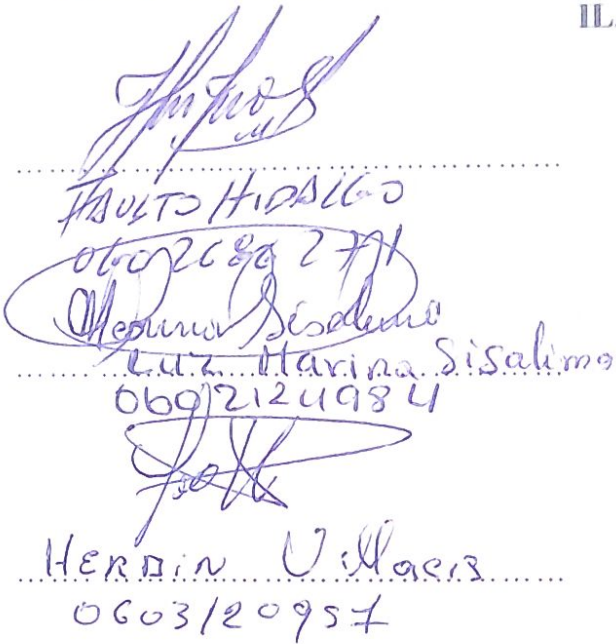 IL
FAUSTO HIDALGO
Marina Sisalima
Luz Marina Sisalima
0602124984
HERBIN Villacis
0603120957